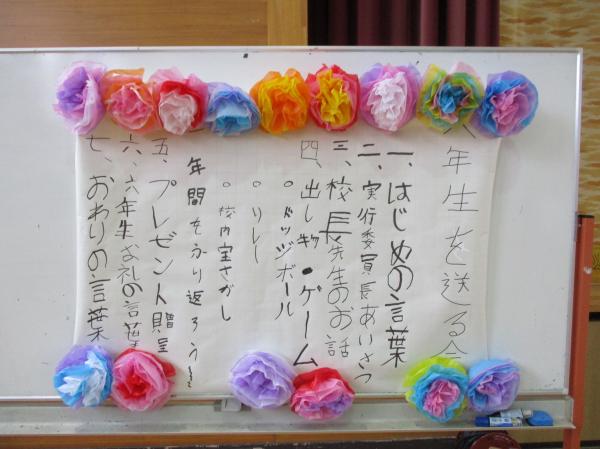 六年生を送る会
一、はじめの言葉
二、実行委員長あいさつ
三、校長先生のお話
四、出し物・ゲーム
。ドッジボール
。リレー
。校内宝さがし
年間をふり返ろう〜
五、プレゼント贈呈
六、六年生お礼の言葉
七、おわりの言葉